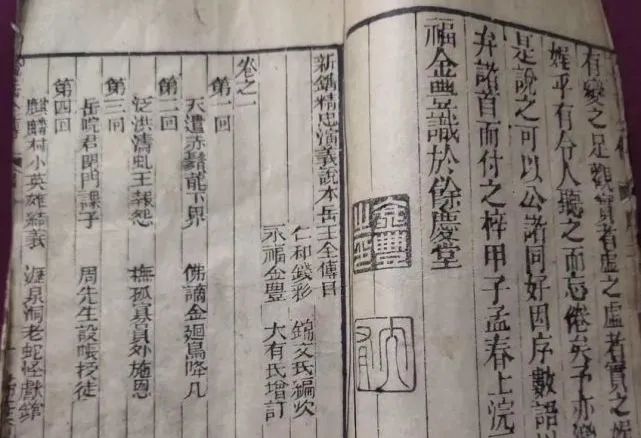 有變之足觀實者虛之虛者實之娓
娓乎有令人聽之而忘倦矣予亦樂
是說之可以公諸同好因序數語
弁諸首而付之梓甲子孟春上浣
福金豐識於餘慶堂
金豐之印
大有
新鐫精忠演義說本岳王全傳目
仁和錢彩 錦文氏編次
永福金豐 大有氏增訂
卷之一
第一回
天遣赤鬚龍下界 佛謫金翅鳥降凡
第二回
泛洪濤虬王報怨 撫孤寡員外施恩
第三回
岳院君閉門課子 周先生設帳授徒
第四回
麒麟村小英雄結義 瀝泉洞老蛇怪獻鎗